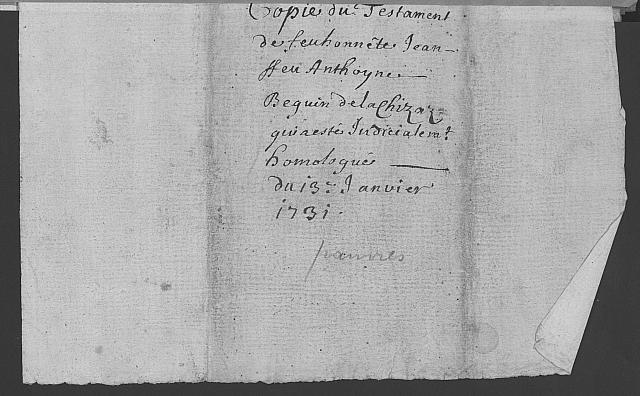 Copie du Testament
de feu honnête Jean
ffeu Anthoyne
Beguin de la Chizaz
qui a esté Judicialem.t
homologué
du 13.e Janvier
1731.
pauvres